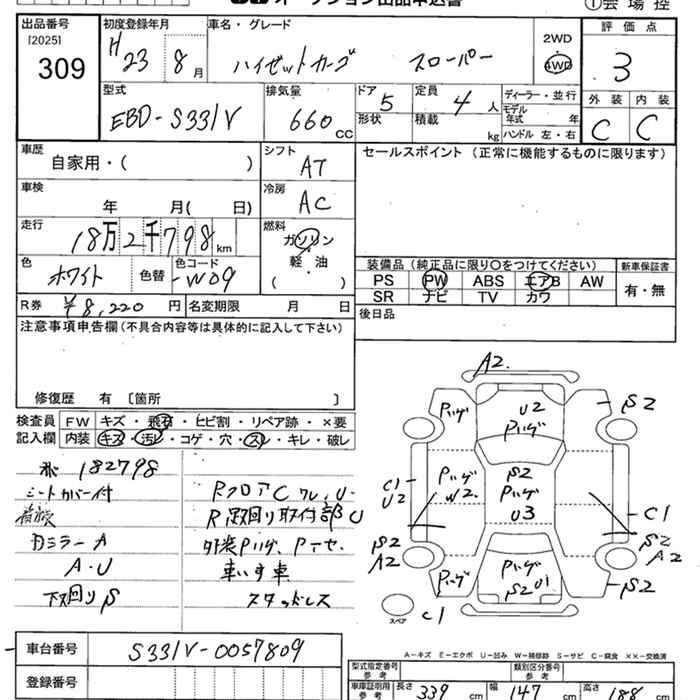 オークション出品申込書
①会場控
出品番号
[2025]
309
初度登録年月
H23 8月
車名・グレード
ハイゼットカーゴ スローパー
2WD
4WD
評価点
3
外装 内装
C C
型式
EBD-S331V
排気量
660cc
ドア 5
形状
定員 4人
積載 kg
ディーラー・並行
モデル年式 年
ハンドル 左・右
車歴
自家用・( )
シフト
AT
セールスポイント(正常に機能するものに限ります)
車検
年 月( 日)
冷房
AC
走行
18万2千798km
燃料
ガソリン
軽・油
( )
色
ホワイト
色替
色コード
-W09
装備品(純正品に限り○をつけてください)
新車保証書
PS PW ABS エアB AW
SR ナビ TV カワ
有・無
R券 ¥8,220円
名変期限 月 日
後日品
注意事項申告欄(不具合内容等は具体的に記入して下さい)
修復歴 有 〔箇所 〕
検査員記入欄
FW キズ・飛石・ヒビ割・リペア跡・×要
内装 キズ・汚レ・コゲ・穴・スレ・キレ・破レ
182798
シートカバー付
Rフロア C ワレ, U
R足回り取付部 U
カミラー A
外装Pハゲ、
A・U
車いす車
下回り S
スタッドレス
A2
Pハゲ
U2
Pハゲ
S2
C1
U2
Pハゲ
W2
S2
Pハゲ
U3
C1
S2
A2
S2
A2
Pハゲ
Pハゲ
S2 U1
S2
スペア
C1
A-キズ E-エクボ U-凹み W-補修跡 S-サビ C-腐食 ××-交換済
車台番号
S331V-0057809
登録番号
型式指定番号 参考
類別区分番号 参考
車庫証明用 参考
長さ 339 cm
幅 147 cm
高さ 188 cm